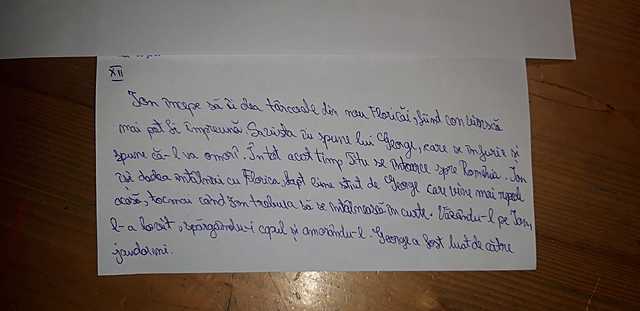 XII
Ion începe să îi dea târcoale din nou Floricăi, fiind convinsă
mai pot fi împreună. Savista îi spune lui George, care se înfurie și
spune că-l va omorî. În tot acest timp Titu se întoarce spre România. Ion
își dădea întâlniri cu Florica, fapt bine știut de George care vine mai repede
acasă, tocmai când Ion trebuia să se întâlnească în curte. Văzându-l pe Ion,
l-a lovit, spărgându-i capul și omorându-l. George a fost luat de către
jandarmi.